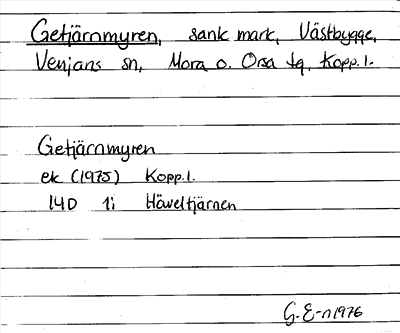 Getjärnmyren, sank mark, Västbygge,
Venjans sn, Mora o. Orsa tg, Kopp.l.
Getjärnmyren
ek (1975) Kopp.l.
14D 1i Häveltjärnen
G.E-n 1976